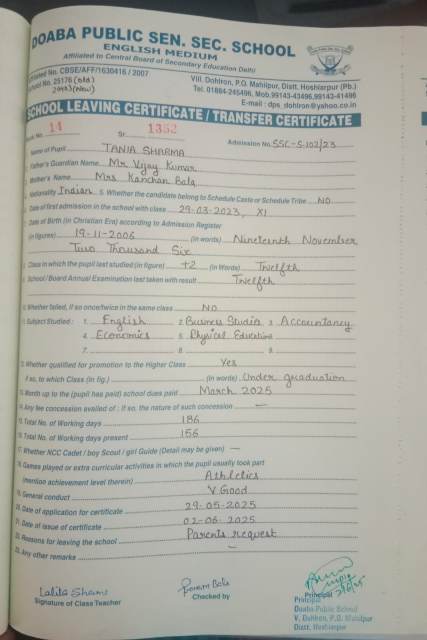 DOABA PUBLIC SEN. SEC. SCHOOL
ENGLISH MEDIUM
Affiliated to Central Board of Secondary Education Delhi
No. CBSE/AFF/1630416 / 2007
No. 25176 (old)
20483 (New)
Vill. Dohlron, P.O. Mahilpur, Distt. Hoshiarpur (Pb.)
Tel. 01884-245496, Mob.99143-43496,99143-41496
E-mail : dps_dohlron@yahoo.co.in
SCHOOL LEAVING CERTIFICATE / TRANSFER CERTIFICATE
No. 14 Sr. 1352 Admission No. SSC-S-102/23
Name of Pupil TANIA SHARMA
Father's Guardian Name Mr Vijay Kumar
Mother's Name Mrs Kanchan Bala
Nationality Indian 5. Whether the candidate belong to Schedule Caste or Schedule Tribe NO
Date of first admission in the school with class 29-03-2023, XI
Date of Birth (in Christian Era) according to Admission Register
(in figures) 19-11-2006 (in words) Nineteenth November
Two Thousand Six
Class in which the pupil last studied (in figure) +2 (in Words) Twelfth
School / Board Annual Examination last taken with result Twelfth
Whether failed, if so once/twice in the same class NO
Subject Studied : 1. English 2. Business Studies 3. Accountancy
4. Economics 5. Physical Education
7. 8. 9.
Whether qualified for promotion to the Higher Class Yes
If so, to which Class (in fig.) (in words) Under graduation
Month up to the (pupil has paid) school dues paid March 2025
Any fee concession availed of : if so, the nature of such concession —
Total No. of Working days 186
Total No. of Working days present 156
17. Whether NCC Cadet / boy Scout / girl Guide (Detail may be given) —
18. Games played or extra curricular activities in which the pupil usually took part
(mention achievement level therein) Athletics
19. General conduct V Good
20. Date of application for certificate 29-05-2025
21. Date of issue of certificate 02-06-2025
22. Reasons for leaving the school Parents request
23. Any other remarks —
Signature of Class Teacher
Checked by
Principal
Principal
Doaba Public School
V. Dohlron, P.O. Mahilpur
Distt. Hoshiarpur